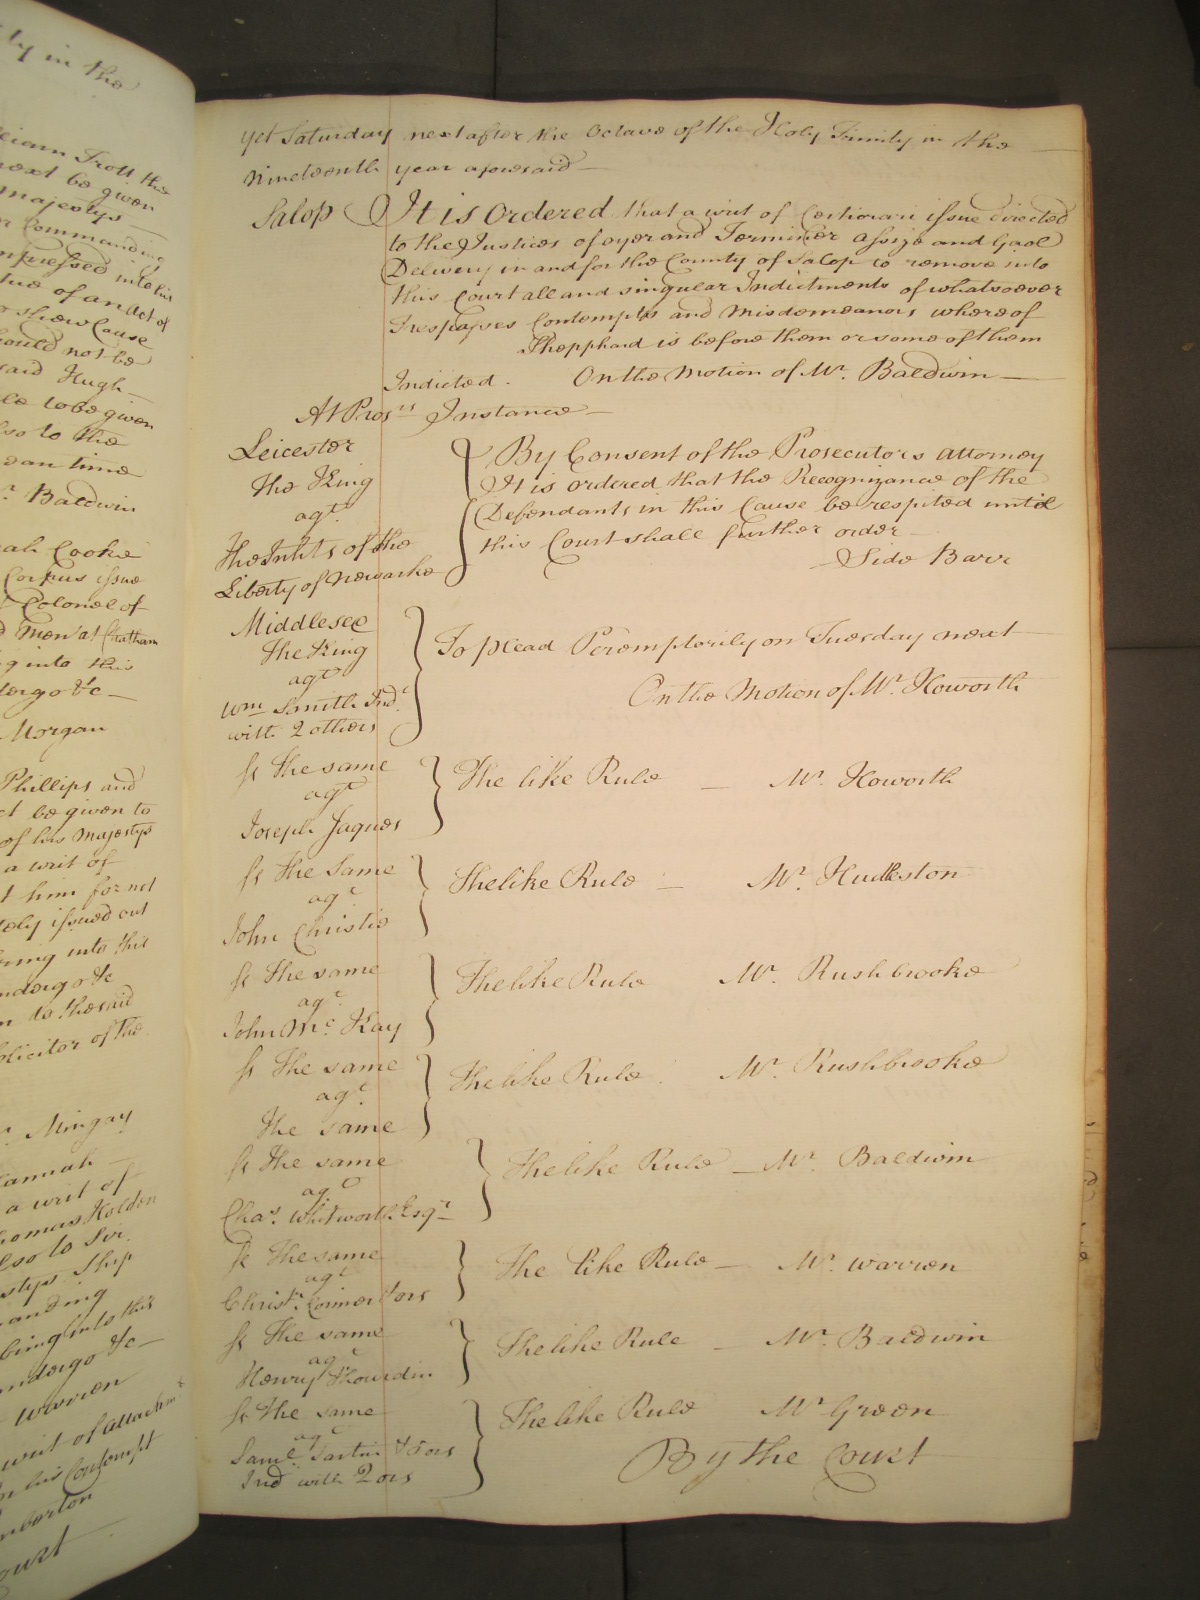 ly in the
William Trott the
next be given
majestys
Commanding
impressed into his
of an Act of
shew Cause
should not be
said Hugh
to be given
also to the
mean time
Mr. Baldwin
Cooke
Corpus issue
Colonel of
men at Chatham
into this
&c
Morgan
Phillips and
be given to
of his Majestys
a writ of
him for not
issued out
into this
&c
to the said
Solicitor of the
Mr. Mingay
Hannah
a writ of
Thomas Holden
also to Sir
Majestys Ship
being into this
undergo &c
Warren
writ of attachmt
his Contempt
Court
yet Saturday next after the Octave of the Holy Trinity in the
Nineteenth year aforesaid
Salop It is Ordered that a writ of Certiorari issue directed
to the Justices of oyer and Terminer Assize and Gaol
Delivery in and for the County of Salop to remove into
this Court all and singular Indictments of whatsoever
Trespasses Contempts and misdemeanors whereof
Shepphard is before them or some of them
Indicted. On the Motion of Mr. Baldwin
At Prosrs Instance
Leicester
The King
agt.
The Inhts of the
Liberty of Newarke
By Consent of the Prosecutors attorney
It is ordered that the Recognizance of the
Defendants in this Cause be respited until
this Court shall further order
Side Barr
Middlesex
The King
agt
Wm Smith Ind.
with 2 others
To plead Peremptorily on Tuesday next
On the Motion of Mr. Howorth
Ss The same
agt
Joseph Jaques
The like Rule Mr. Howorth
Ss The Same
agt
John Christie
The like Rule Mr. Hudleston
Ss The same
agt.
John Mc Kay
The like Rule Mr. Rushbrooke
Ss The same
agt.
The same
The like Rule Mr. Rushbrooke
Ss The same
agt
Chas. Whitworth Esqr
The like Rule Mr. Baldwin
Ss The same
agt
Christr. Connor &ors
The like Rule Mr. Warren
Ss The same
agt
Henry Hourdin
The like Rule Mr. Baldwin
Ss The same
agt
Saml. Sartin &ors
Ind with 2 ors
The like Rule Mr Green
By the Court